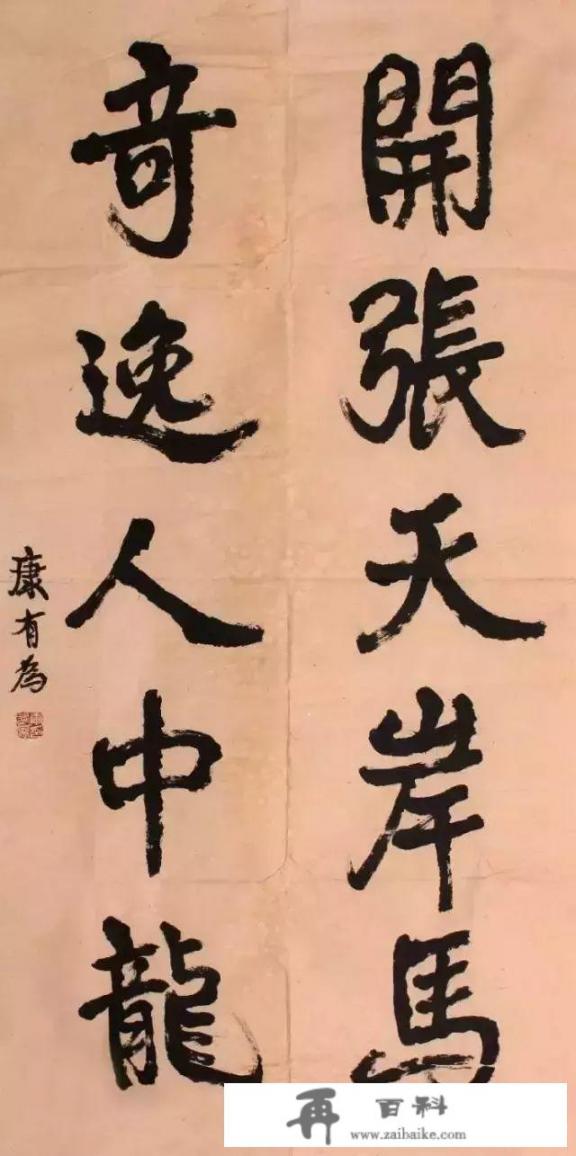 開張天岸馬
奇逸人中龍
康有為
再百科
www.zaibaike.com